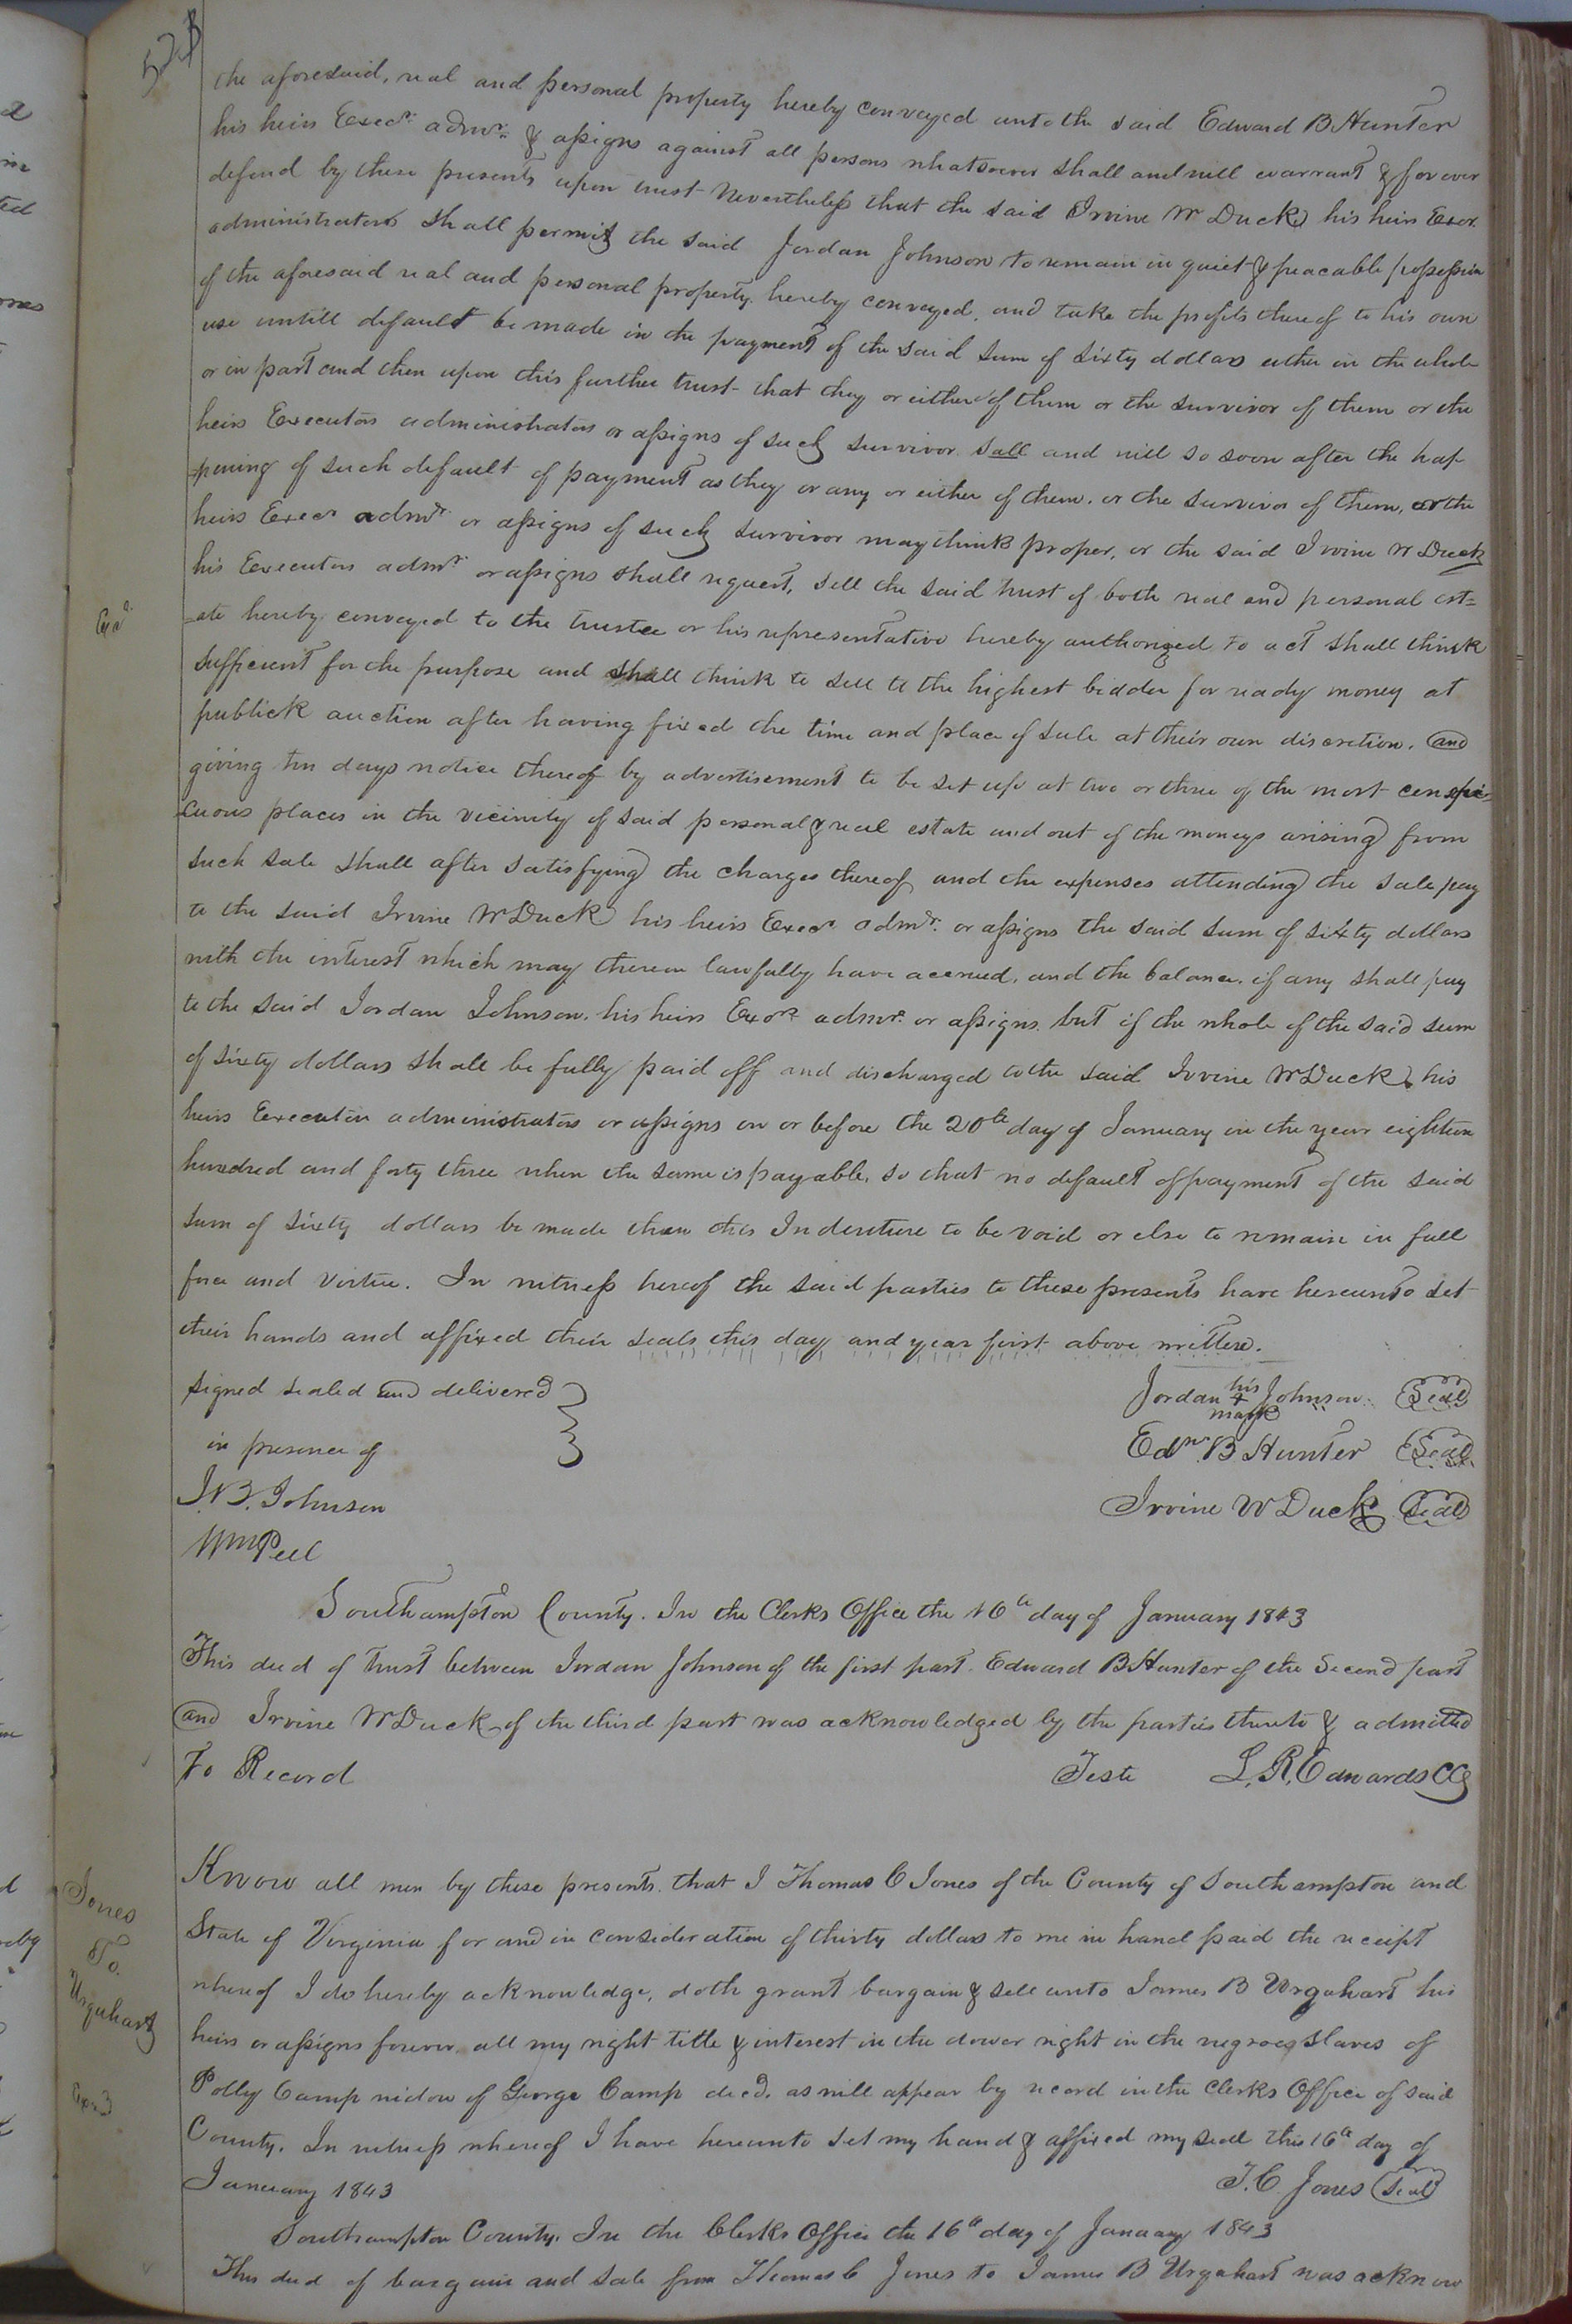 the aforesaid, real and personal property hereby conveyed unto the said Edward B Hunter
his heirs Execr. admr. & assigns against all persons whatsoever shall and will warrant & forever
defend by these presents upon trust Nevertheless that the said Irvine W Duck his heirs Exor.
administrators shall permit the said Jordan Johnson to remain in quiet & peacable possession
of the aforesaid real and personal property hereby conveyed, and take the profits thereof to his own
use untill default be made in the payment of the said sum of sixty dollars either in the whole
or in part and then upon this further trust that they or either of them or the survivor of them or the
heirs Executors administrators or assigns of such survivor sall and will so soon after the hap
pening of such default of payment as they or any or either of them, or the survivor of them, or the
heirs Execr admr or assigns of such survivor may think proper, or the said Irvine W Duck
his Executors admr or assigns shall request, sell the said trust of both real and personal est=
=ate hereby conveyed to the trustee or his representative hereby authorized to act shall think
Exd.
sufficient for the purpose and shall think to sell to the highest bidder for ready money at
publick auction after having fixed the time and place of sale at their own discretion, and
giving ten days notice thereof by advertisement to be set up at two or three of the most conspi-
cuous places in the vicinity of said personal & real estate and out of the moneys arising from
such sale shall after satisfying the charges thereof and the expenses attending the sale pay
to the said Irvine W Duck his heirs Execr admr. or assigns the said sum of sixty dollars
with the interest which may thereon lawfully have accrued, and the balance, if any shall pay
to the said Jordan Johnson, his heirs Exor admr. or assigns. but if the whole of the said sum
of sixty dollars shall be fully paid off and discharged to the said Irvine W Duck, his
heirs Executors administrators or assigns on or before the 20th day of January in the year eighteen
hundred and forty three when the same is payable, so that no default of payment of the said
sum of sixty dollars be made then this Indenture to be void or else to remain in full
force and virtue. In witness hereof the said parties to these presents have hereunto set
their hands and affixed their seals this day and year first above written.
signed sealed and delivered
in presence of
J.B. Johnson
Wm Peel
Jordan his + mark Johnson. Seal
Edwd B Hunter Seal
Irvine W Duck Seal
Southampton County. In the Clerks Office the 16th day of January 1843
This deed of Trust between Jordan Johnson of the first part. Edward B Hunter of the Second part
and Irvine W Duck of the third part was acknowledged by the parties thereto & admitted
To Record Teste L. R. Edwards CC
Jones
To.
Urquhart
Know all men by these presents, that I Thomas C Jones of the County of Southampton and
State of Virginia for and in consideration of thirty dollars to me in hand paid the receipt
whereof I do hereby acknowledge, doth grant bargain & sell unto James B Urquhart his
heirs or assigns forever all my right title & interest in the dower right in the negroes slaves of
Polly Camp widow of George Camp decd. as will appear by record in the Clerks Office of said
County. In witness whereof I have hereunto set my hand & affixed my seal this 16th day of
January 1843 T. C. Jones Seal
Southampton County, In the Clerks Office the 16th day of January 1843
This deed of bargain and sale from Thomas C Jones to James B Urquhart was acknow